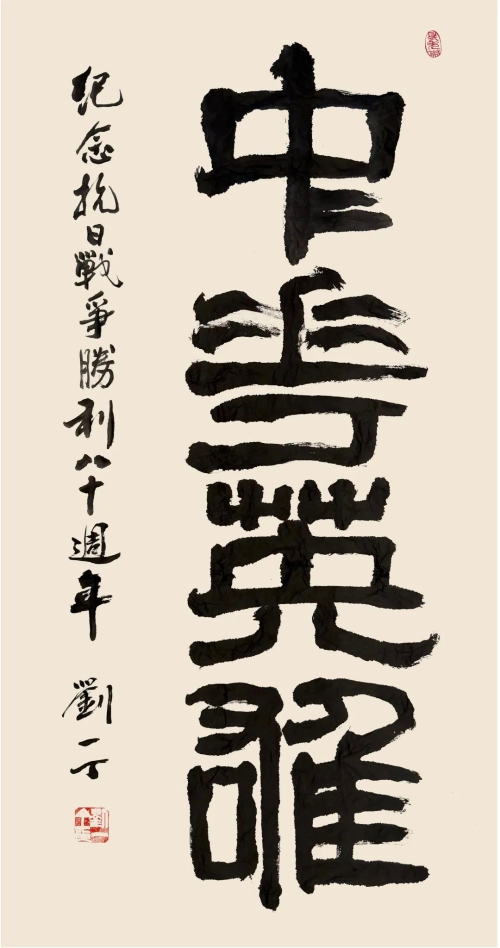 中華英雄
紀念抗日戰爭勝利八十週年 劉一丁